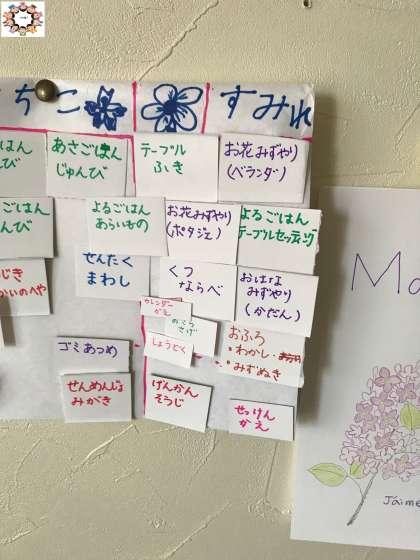 ちこ
すみれ
はん
び
あさごはん
じゅんび
テーブル
ふき
お花みずやり
(ベランダ)
ごはん
び
よるごはん
あらいもの
お花みずやり
(ポタジェ)
よるごはん
テーブルセッティング
じき
かいのへや
せんたく
まわし
くつ
ならべ
おはな
みずやり
(かだん)
カレンダー
かえ
しょうどく
おふろ
・わかし・
・みずぬき
ゴミあつめ
せんめんじょ
みがき
げんかん
そうじ
せっけん
かえ
Ma
Jaime